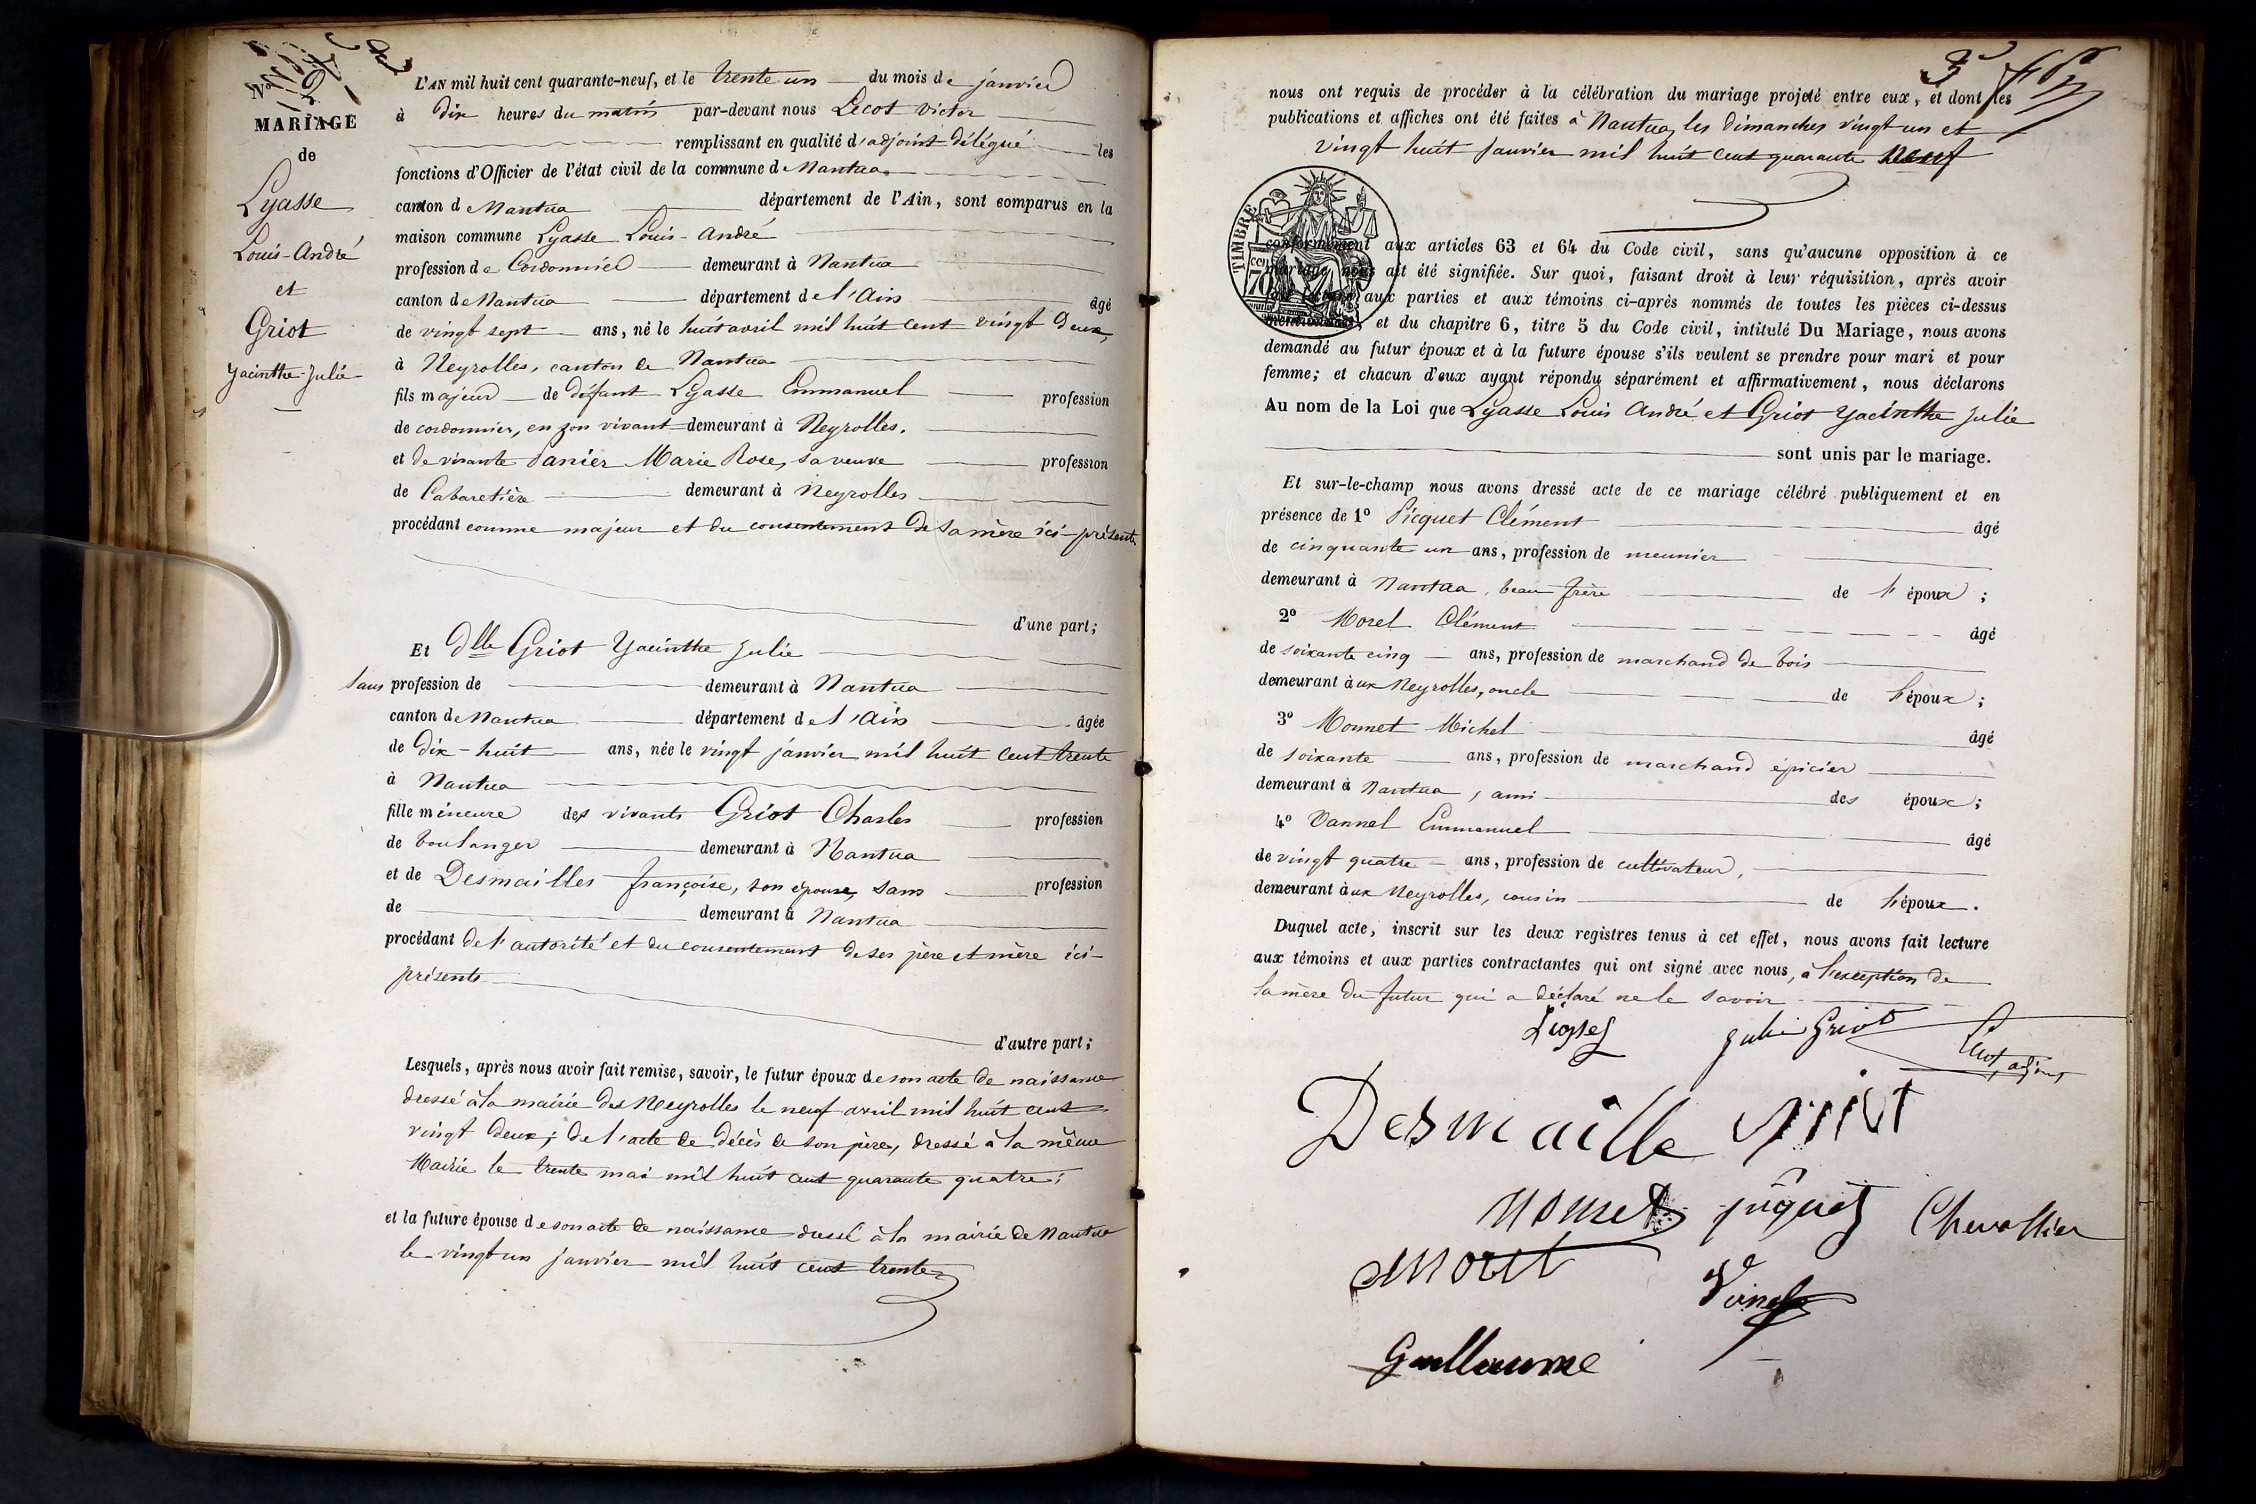 MARIAGE
de
Lyasse
Louis-André
et
Griot
Yacinthe Julie
L'AN mil huit cent quarante-neuf, et le trente un du mois de janvier
à dix heures du matin par-devant nous Lecot Victor
remplissant en qualité d'adjoint délégué les
fonctions d'Officier de l'état civil de la commune de Nantua
canton de Nantua département de l'Ain, sont comparus en la
maison commune Lyasse Louis-André
profession de Cordonnier demeurant à Nantua
canton de Nantua département de l'Ain âgé
de vingt sept ans, né le huit avril mil huit cent vingt deux,
à Neyrolles, canton de Nantua
fils majeur de défunt Lyasse Emmanuel profession
de cordonnier, en son vivant demeurant à Neyrolles.
et de vivante Marie Rose, sa veuve profession
de Cabaretière demeurant à Neyrolles
procédant comme majeur et du consentement de sa mère ici présente
d'une part;
Et Dlle Griot Yacinthe Julie
sans profession de demeurant à Nantua
canton de Nantua département de l'Ain âgée
de dix-huit ans, née le vingt janvier mil huit cent trente
à Nantua
fille mineure des vivants Griot Charles profession
de boulanger demeurant à Nantua
et de Desmailles françoise, son épouse, sans profession
de demeurant à Nantua
procédant de l'autorité et du consentement de ses père et mère ici-
présents
d'autre part;
Lesquels, après nous avoir fait remise, savoir, le futur époux de son acte de naissance
dressé à la mairie des Neyrolles le neuf avril mil huit cent
vingt deux; de l'acte de décès de son père, dressé à la même
Mairie le trente mai mil huit cent quarante quatre;
et la future épouse de son acte de naissance dressé à la mairie de Nantua
le vingt un janvier mil huit cent trente
nous ont requis de procéder à la célébration du mariage projeté entre eux, et dont les
publications et affiches ont été faites à Nantua, les dimanches vingt un et
vingt huit janvier mil huit cent quarante neuf
TIMBRE
70
conformément aux articles 63 et 64 du Code civil, sans qu'aucune opposition à ce
mariage nous ait été signifiée. Sur quoi, faisant droit à leur réquisition, après avoir
fait lecture aux parties et aux témoins ci-après nommés de toutes les pièces ci-dessus
mentionnées, et du chapitre 6, titre 5 du Code civil, intitulé Du Mariage, nous avons
demandé au futur époux et à la future épouse s'ils veulent se prendre pour mari et pour
femme; et chacun d'eux ayant répondu séparément et affirmativement, nous déclarons
Au nom de la Loi que Lyasse Louis André et Griot Yacinthe Julie
sont unis par le mariage.
Et sur-le-champ nous avons dressé acte de ce mariage célébré publiquement et en
présence de 1º Picquet Clément âgé
de cinquante un ans, profession de meunier
demeurant à Nantua, beau frère de l'époux;
2º Morel Clément âgé
de soixante cinq ans, profession de marchand de bois
demeurant à ux Neyrolles, oncle de l'époux;
3º Mounet Michel âgé
de soixante ans, profession de marchand épicier
demeurant à Nantua, ami des époux;
4º Vannel Emmanuel âgé
de vingt quatre ans, profession de cultivateur,
demeurant à ux Neyrolles, cousin de l'époux.
Duquel acte, inscrit sur les deux registres tenus à cet effet, nous avons fait lecture
aux témoins et aux parties contractantes qui ont signé avec nous, à l'exception de
la mère du futur qui a déclaré ne le savoir
Julie Griot
Lecot, adjoint
Desmaille Griot
Mounet piquet Chevallier
Morel
Guillaume